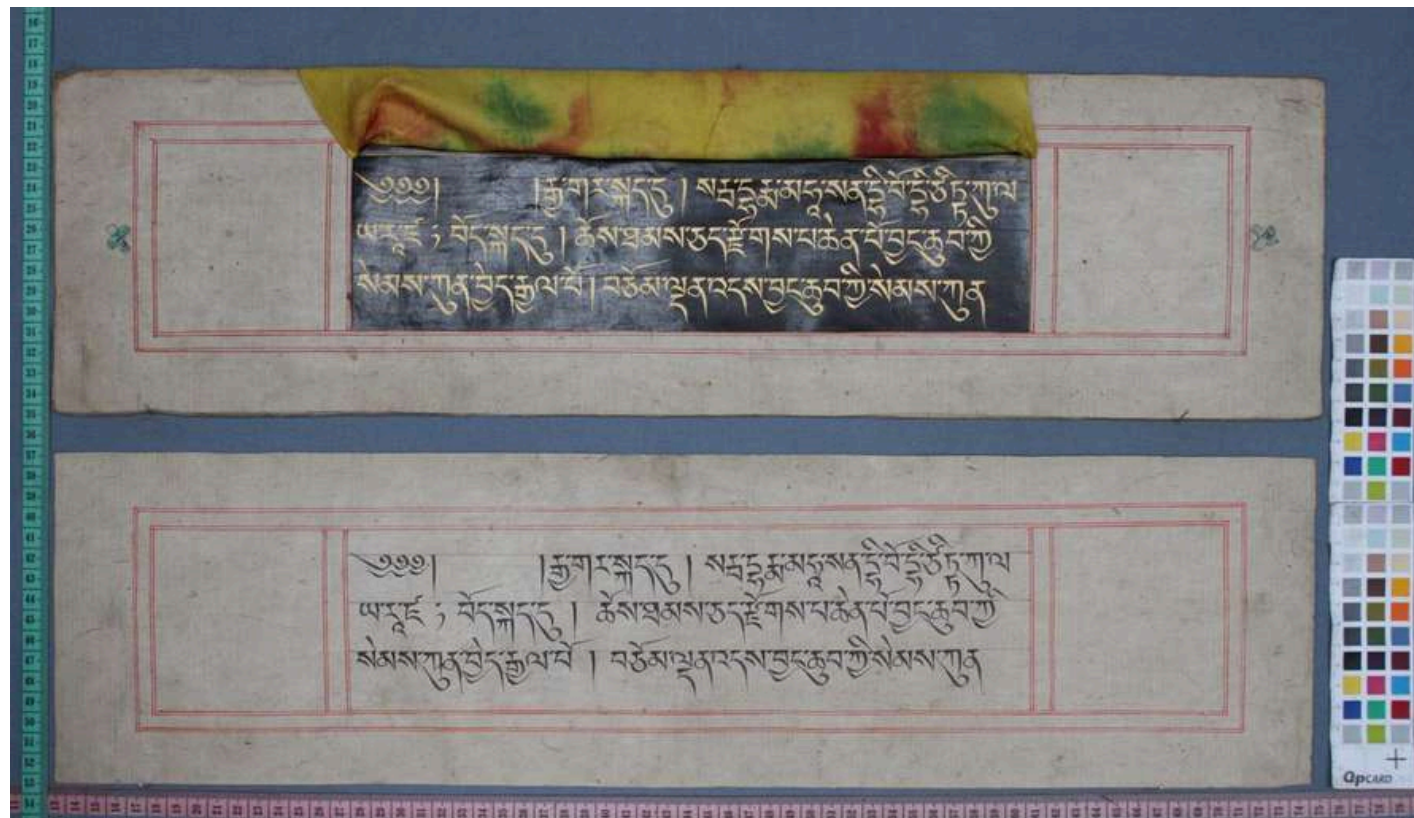 ༄༅༅། །རྒྱ་གར་སྐད་དུ། སརྦ་དྷརྨ་མ་ཧཱ་སན་དྷི་བོ་དྷི་ཙིཏྟ་ཀུ་ལ
ཡ་རཱ་ཛ ; བོད་སྐད་དུ། ཆོས་ཐམས་ཅད་རྫོགས་པ་ཆེན་པོ་བྱང་ཆུབ་ཀྱི
སེམས་ཀུན་བྱེད་རྒྱལ་པོ། བཅོམ་ལྡན་འདས་བྱང་ཆུབ་ཀྱི་སེམས་ཀུན
༄༅༅། །རྒྱ་གར་སྐད་དུ། སརྦ་དྷརྨ་མ་ཧཱ་སན་དྷི་བོ་དྷི་ཙིཏྟ་ཀུ་ལ
ཡ་རཱ་ཛ ; བོད་སྐད་དུ། ཆོས་ཐམས་ཅད་རྫོགས་པ་ཆེན་པོ་བྱང་ཆུབ་ཀྱི
སེམས་ཀུན་བྱེད་རྒྱལ་པོ ། བཅོམ་ལྡན་འདས་བྱང་ཆུབ་ཀྱི་སེམས་ཀུན
QPCARD